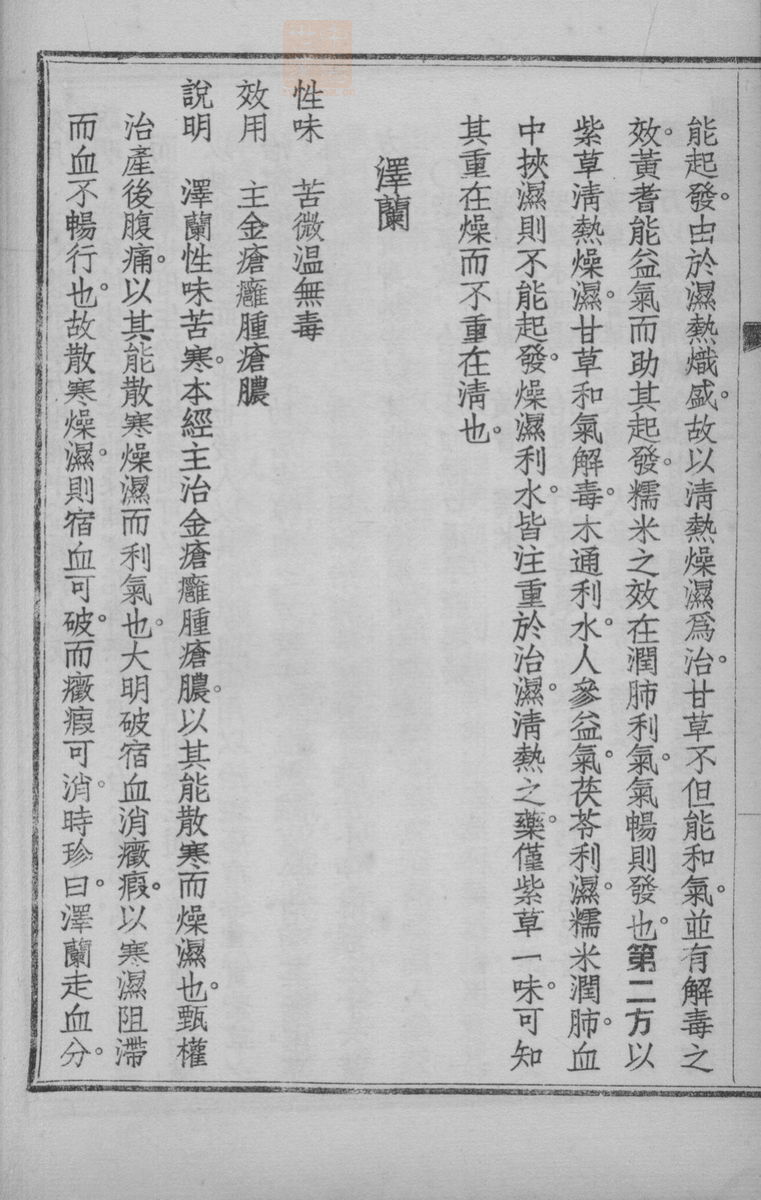 能起發。由於濕熱熾盛。故以淸熱燥濕爲治。甘草不但能和氣。並有解毒之
效。黃耆能益氣而助其起發。糯米之效在潤肺利氣。氣暢則發也。第二方以
紫草淸熱燥濕。甘草和氣解毒。木通利水。人參益氣。茯苓利濕。糯米潤肺。血
中挾濕則不能起發。燥濕利水。皆注重於治濕。淸熱之藥。僅紫草一味。可知
其重在燥而不重在淸也。
澤蘭
性味　苦微温無毒
效用　主金瘡癰腫瘡膿
說明　澤蘭性味苦寒。本經主治金瘡癰腫瘡膿。以其能散寒而燥濕也。甄權
治產後腹痛。以其能散寒燥濕而利氣也。大明破宿血消癥瘕。以寒濕阻滯
而血不暢行也。故散寒燥濕。則宿血可破。而癥瘕可消。時珍曰。澤蘭走血分。